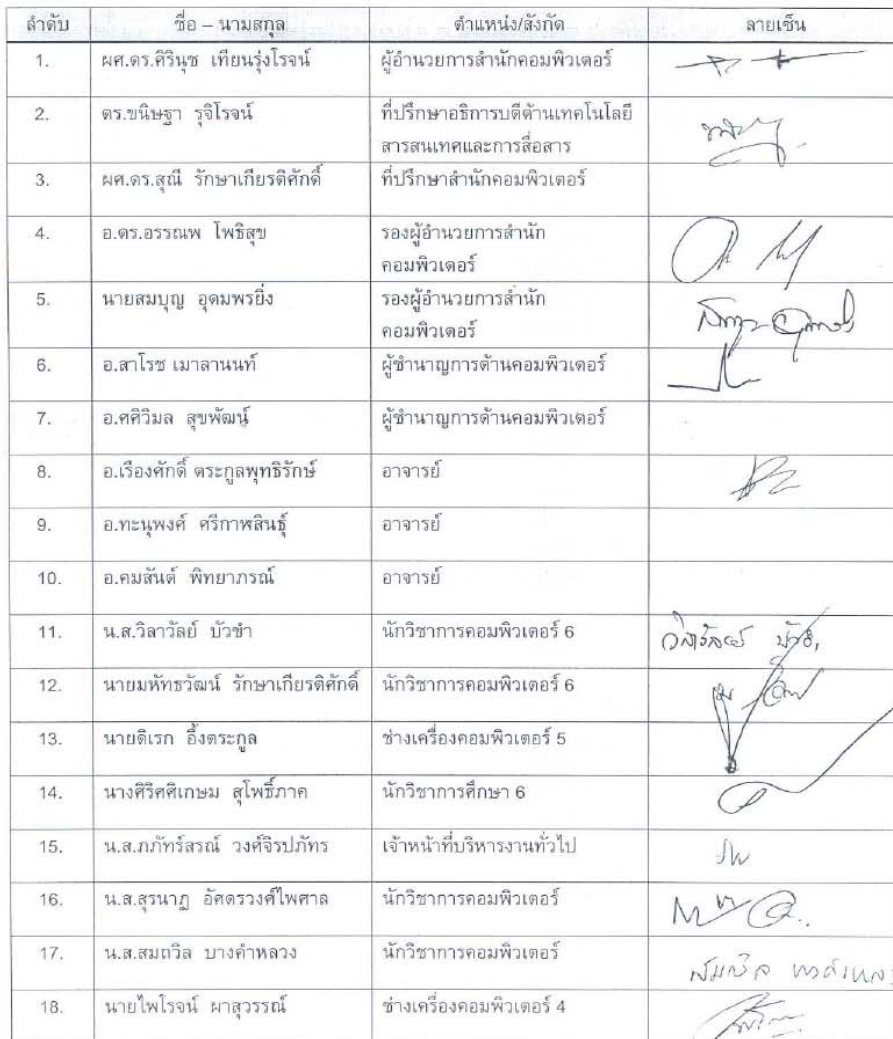 ลำดับ ชื่อ – นามสกุล ตำแหน่ง/สังกัด ลายเซ็น
1. ผศ.ดร.ศิรินุช เทียนรุ่งโรจน์ ผู้อำนวยการสำนักคอมพิวเตอร์
2. ดร.ขนิษฐา รุจิโรจน์ ที่ปรึกษาอธิการบดีด้านเทคโนโลยี
สารสนเทศและการสื่อสาร
3. ผศ.ดร.สุณี รักษาเกียรติศักดิ์ ที่ปรึกษาสำนักคอมพิวเตอร์
4. อ.ดร.อรรณพ โพธิสุข รองผู้อำนวยการสำนัก
คอมพิวเตอร์
5. นายสมบุญ อุดมพรยิ่ง รองผู้อำนวยการสำนัก
คอมพิวเตอร์
6. อ.สาโรช เมาลานนท์ ผู้ชำนาญการด้านคอมพิวเตอร์
7. อ.ศศิวิมล สุขพัฒน์ ผู้ชำนาญการด้านคอมพิวเตอร์
8. อ.เรืองศักดิ์ ตระกูลพุทธิรักษ์ อาจารย์
9. อ.ทะนุพงศ์ ศรีกาฬสินธุ์ อาจารย์
10. อ.คมสันต์ พิทยาภรณ์ อาจารย์
11. น.ส.วิลาวัลย์ บัวขำ นักวิชาการคอมพิวเตอร์ 6 วิลาวัลย์
12. นายมหัทธวัฒน์ รักษาเกียรติศักดิ์ นักวิชาการคอมพิวเตอร์ 6
13. นายดิเรก อึ้งตระกูล ช่างเครื่องคอมพิวเตอร์ 5
14. นางศิริศศิเกษม สุโพธิ์ภาค นักวิชาการศึกษา 6
15. น.ส.ภภัทร์สรณ์ วงศ์จิรปภัทร เจ้าหน้าที่บริหารงานทั่วไป
16. น.ส.สุรนาฎ อัศดรวงศ์ไพศาล นักวิชาการคอมพิวเตอร์
17. น.ส.สมถวิล บางคำหลวง นักวิชาการคอมพิวเตอร์
18. นายไพโรจน์ ผาสุวรรณ์ ช่างเครื่องคอมพิวเตอร์ 4